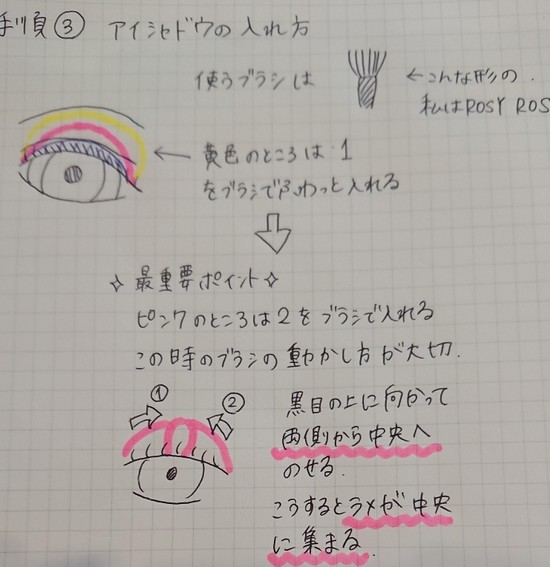 手順③ アイシャドウの入れ方
使うブラシは
←こんな形の.
私はROSY ROS
← 黄色のところは1
をブラシでふわっと入れる
✧最重要ポイント✧
ピンクのところは2をブラシで入れる
この時のブラシの動かし方が大切.
①
②
黒目の上に向かって
両側から中央へ
のせる.
こうするとラメが中央
に集まる.